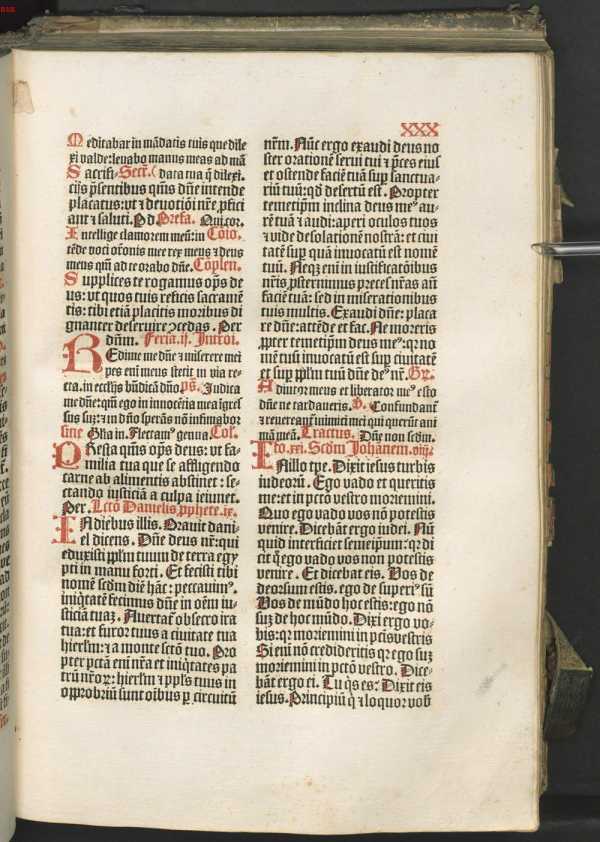 XXX
Meditabar in mādatis tuis que dile
xi valde: leuabo manus meas ad mā
data tua q̄ dilexi. Secr̄. Sacrifi-
cijs p̄sentibus qm̄s dn̄e intende
placatus: vt ⁊ deuotiōi nr̄e ꝓfici
ant ⁊ saluti. Pd Prefa. Qui cor.
Intellige clamorem meū: in Cōio.
tēde voci or̄onis mee rex meus ⁊ deus
meus qm̄ ad te orabo dn̄e. Cōplen.
Supplices te rogamus op̄s de
us: vt quos tuis reficis sacramē
tis: tibi etiā placitis moribus di
gnanter deseruire ꝯcedas. Per
dn̄m. Feria.ij. Introi.
Redime me dn̄e ⁊ miserere mei
pes eni meus stetit in via re-
cta. in eccl̄ijs bn̄dicā dn̄o pš. Judica
me dn̄e: qm̄ ego in innocētia mea īgres
sus suꝫ: ⁊ in dn̄o sperās nō infirmabor
sine Gl̄ia in. Flectam⁹ genua Col̄.
Presta qm̄s op̄s deus: vt fa-
milia tua que se affligendo
carne ab alimentis abstinet: se-
ctando iusticiā a culpa ieiunet.
Per. Lctō Danielis ꝓphete.ix.
In diebus illis. Orauit dani-
el dicens. Dn̄e deus nr̄: qui
eduxisti pp̄lm tuum de terra egy
pti in manu forti. Et fecisti tibi
nomē scdm diē hāc: peccauim⁹.
iniq̇tatē fecimus dn̄e in oēm iu-
sticiā tuaꝫ. Auertat̄ obsecro ira
tua: et furor tuus a ciuitate tua
hierlm̄: ⁊ a monte sctō tuo. Pro
pter pctā eni nr̄a et iniq̇tates pa
trū nr̄oꝝ: hierlm̄ ⁊ pp̄ls tuus in
opprobriū sunt oībus ꝑ circuitū
nr̄m. Nūc ergo exaudi deus no
ster orationē serui tui ⁊ p̄ces eius
et ostende faciē tuā suꝑ sanctua-
riū tuū: qd̄ desertū est. Propter
temetip̄m inclina deus me⁹ au-
rē tuā ⁊ audi: aperi oculos tuos
⁊ vide desolationē nostrā: et ciui
tatē suꝑ quā inuocatū est nomē
tuū. Neqꝫ eni in iustificatōibus
nr̄is ꝓsternimus preces nr̄as an̄
faciē tuā: sed in miserationibus
tuis multis. Exaudi dn̄e: placa
re dn̄e: attēde et fac. Ne moreris
ꝓpter temetip̄m deus me⁹: qꝛ no-
mē tuū inuocatū est suꝑ ciuitatē
et suꝑ pp̄lm tuū dn̄e de⁹ nr̄. Gr̄.
Adiutor meus et liberator me⁹ esto
dn̄e ne tardaueris. V̄. Confundant̄
⁊ reuereant̄ inimici mei qui querūt ani
mā meā. Tractus. Dn̄e non scdm.
Lctō.xxi. Scdm Johānem.viij.
In illo tpe. Dixit iesus turbis
iudeorū. Ego vado et queritis
me: et in pctō vestro moriemini.
Quo ego vado vos nō potestis
venire. Dicebāt ergo iudei. Nū
quid interficiet semetip̄um: qꝛ di
cit q̇ ego vado vos non potestis
venire. Et dicebat eis. Vos de
deorsum estis. ego de superi⁹ sū
Vos de mūdo hoc estis: ego nō
suꝫ de hoc mūdo. Dixi ergo vo-
bis: qꝛ moriemini in pctis vestris
Si eni nō credideritis qꝛ ego suꝫ
moriemini in pctō vestro. Dice-
bāt ergo ei. Tu q̇s es: Dixit eis
iesus. Principiū q̇ ⁊ loquor vob̄